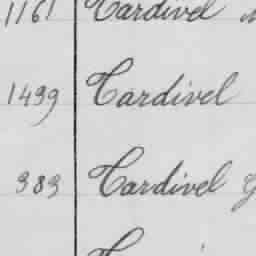 1161 Cardivel
1499 Cardivel
989 Cardivel G